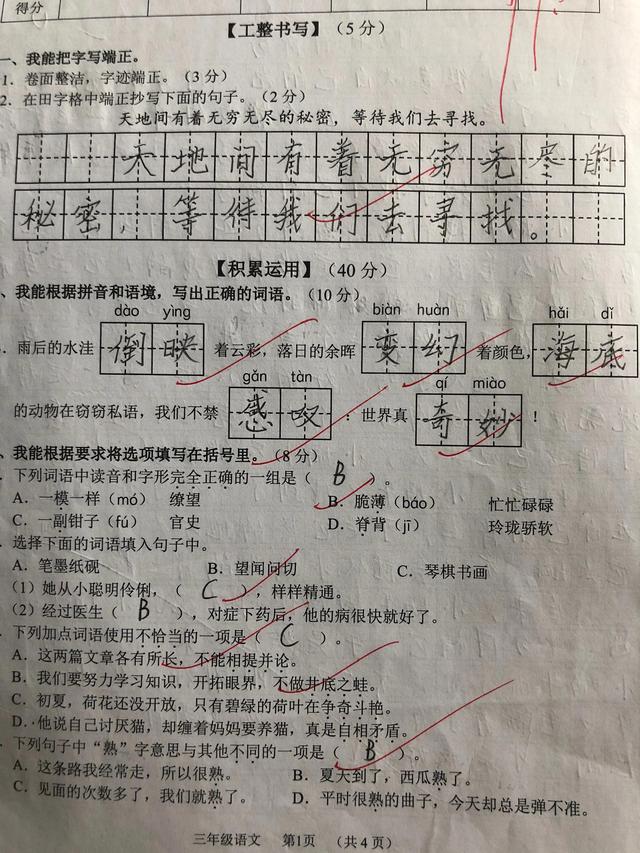 得分
【工整书写】（5 分）
一、我能把字写端正。
1．卷面整洁，字迹端正。（3 分）
2．在田字格中端正抄写下面的句子。（2 分）
天地间有着无穷无尽的秘密，等待我们去寻找。
天地间有着无穷无尽的
秘密，等待我们去寻找。
【积累运用】（40 分）
、我能根据拼音和语境，写出正确的词语。（10 分）
dào yìng biàn huàn hǎi dǐ
雨后的水洼 倒映 着云彩，落日的余晖 变幻 着颜色，海底
gǎn tàn qí miào
的动物在窃窃私语，我们不禁 感叹 ：世界真 奇妙 ！
、我能根据要求将选项填写在括号里。（8 分）
．下列词语中读音和字形完全正确的一组是（ B ）。
A．一模一样（mó） 缭望 B．脆薄（báo） 忙忙碌碌
C．一副钳子（fú） 官史 D．脊背（jī） 玲珑骄软
．选择下面的词语填入句子中。
A．笔墨纸砚 B．望闻问切 C．琴棋书画
（1）她从小聪明伶俐，（ C ），样样精通。
（2）经过医生（ B ），对症下药后，他的病很快就好了。
．下列加点词语使用不恰当的一项是（ C ）。
A．这两篇文章各有所长，不能相提并论。
B．我们要努力学习知识，开拓眼界，不做井底之蛙。
C．初夏，荷花还没开放，只有碧绿的荷叶在争奇斗艳。
D．他说自己讨厌猫，却缠着妈妈要养猫，真是自相矛盾。
．下列句子中“熟”字意思与其他不同的一项是（ B ）。
A．这条路我经常走，所以很熟。 B．夏天到了，西瓜熟了。
C．见面的次数多了，我们就熟了。 D．平时很熟的曲子，今天却总是弹不准。
三年级语文 第1页 （共 4 页）